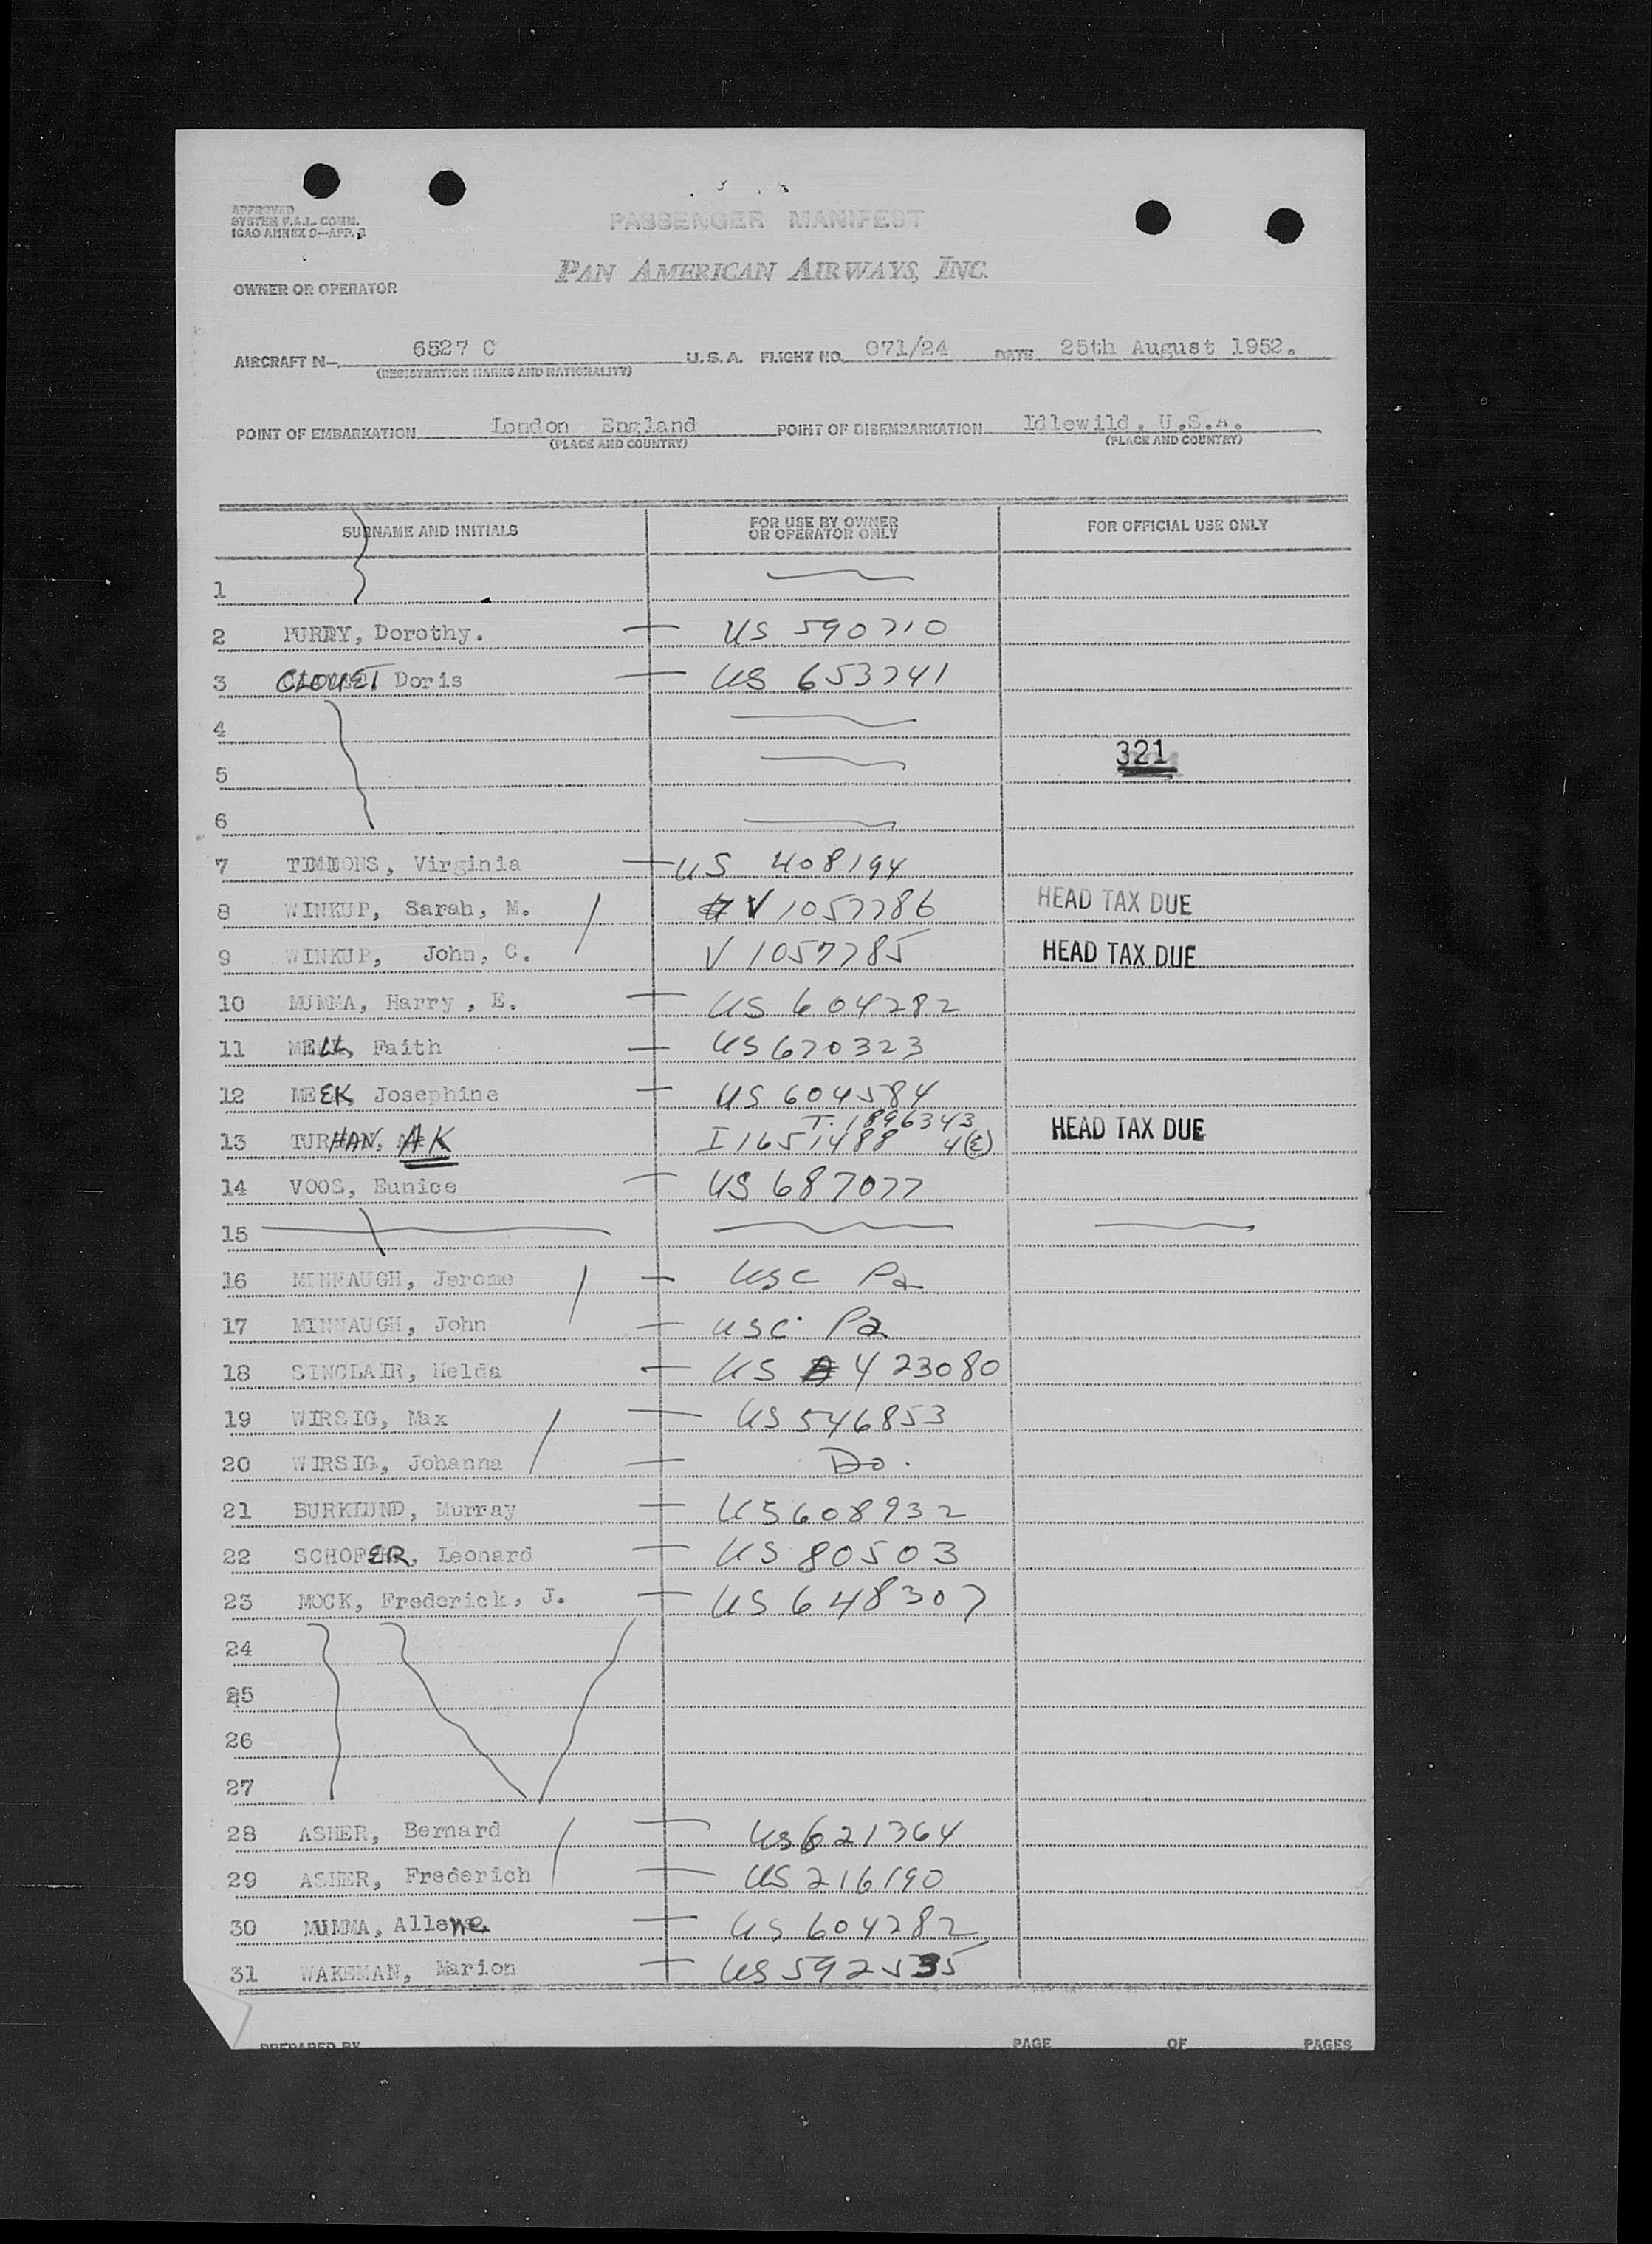 APPROVED
SYSTEM F.A.L. COMM.
ICAO ANNEX 9—APP. 2
PASSENGER MANIFEST
PAN AMERICAN AIRWAYS, INC.
OWNER OR OPERATOR
AIRCRAFT N— 6527 C U. S. A. FLIGHT NO. 071/24 DATE 25th August 1952.
(REGISTRATION MARKS AND NATIONALITY)
POINT OF EMBARKATION London England POINT OF DISEMBARKATION Idlewild, U.S.A.
(PLACE AND COUNTRY) (PLACE AND COUNTRY)
SURNAME AND INITIALS FOR USE BY OWNER OR OPERATOR ONLY FOR OFFICIAL USE ONLY
1
2 PURDY, Dorothy. — US 590710
3 CLOUET, Doris — US 653741
4
5 321
6
7 TIMMONS, Virginia — US 408194
8 WINKUP, Sarah, M. V 1057786 HEAD TAX DUE
9 WINKUP, John, C. V 1057785 HEAD TAX DUE
10 MUMMA, Harry, E. — US 604282
11 MELL, Faith — US 670323
12 MEEK, Josephine — US 604584
T. 1896343
13 TURHAN, AK I 1651488 4(E) HEAD TAX DUE
14 VOOS, Eunice — US 687077
15
16 MINNAUGH, Jerome — USC Pa
17 MINNAUGH, John — USC Pa
18 SINCLAIR, Helda — US 423080
19 WIRSIG, Max — US 546853
20 WIRSIG, Johanna — Do.
21 BURKLUND, Murray — US 608932
22 SCHOFER, Leonard — US 80503
23 MOCK, Frederick, J. — US 648307
24
25
26
27
28 ASHER, Bernard — US 621364
29 ASHER, Frederich — US 216190
30 MUMMA, Allene — US 604282
31 WAKEMAN, Marion — US 592535
PREPARED BY PAGE OF PAGES